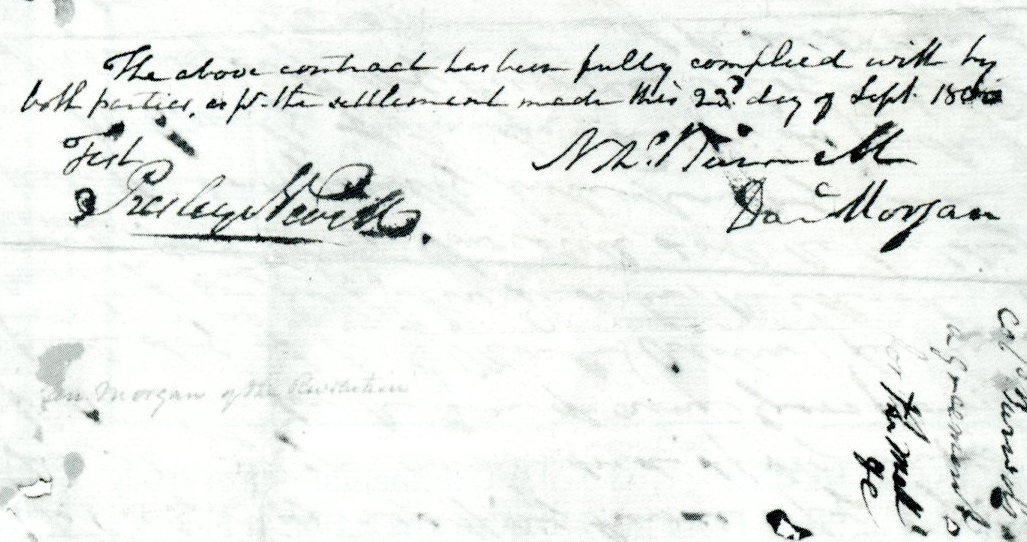 The above contract has been fully complied with by
both parties, as pr. the settlement made this 23d. day of Sept. 1800
Test
Presley Nevill.
Danl Morgan
Gen Morgan of the Revolution
agreement
for
&c